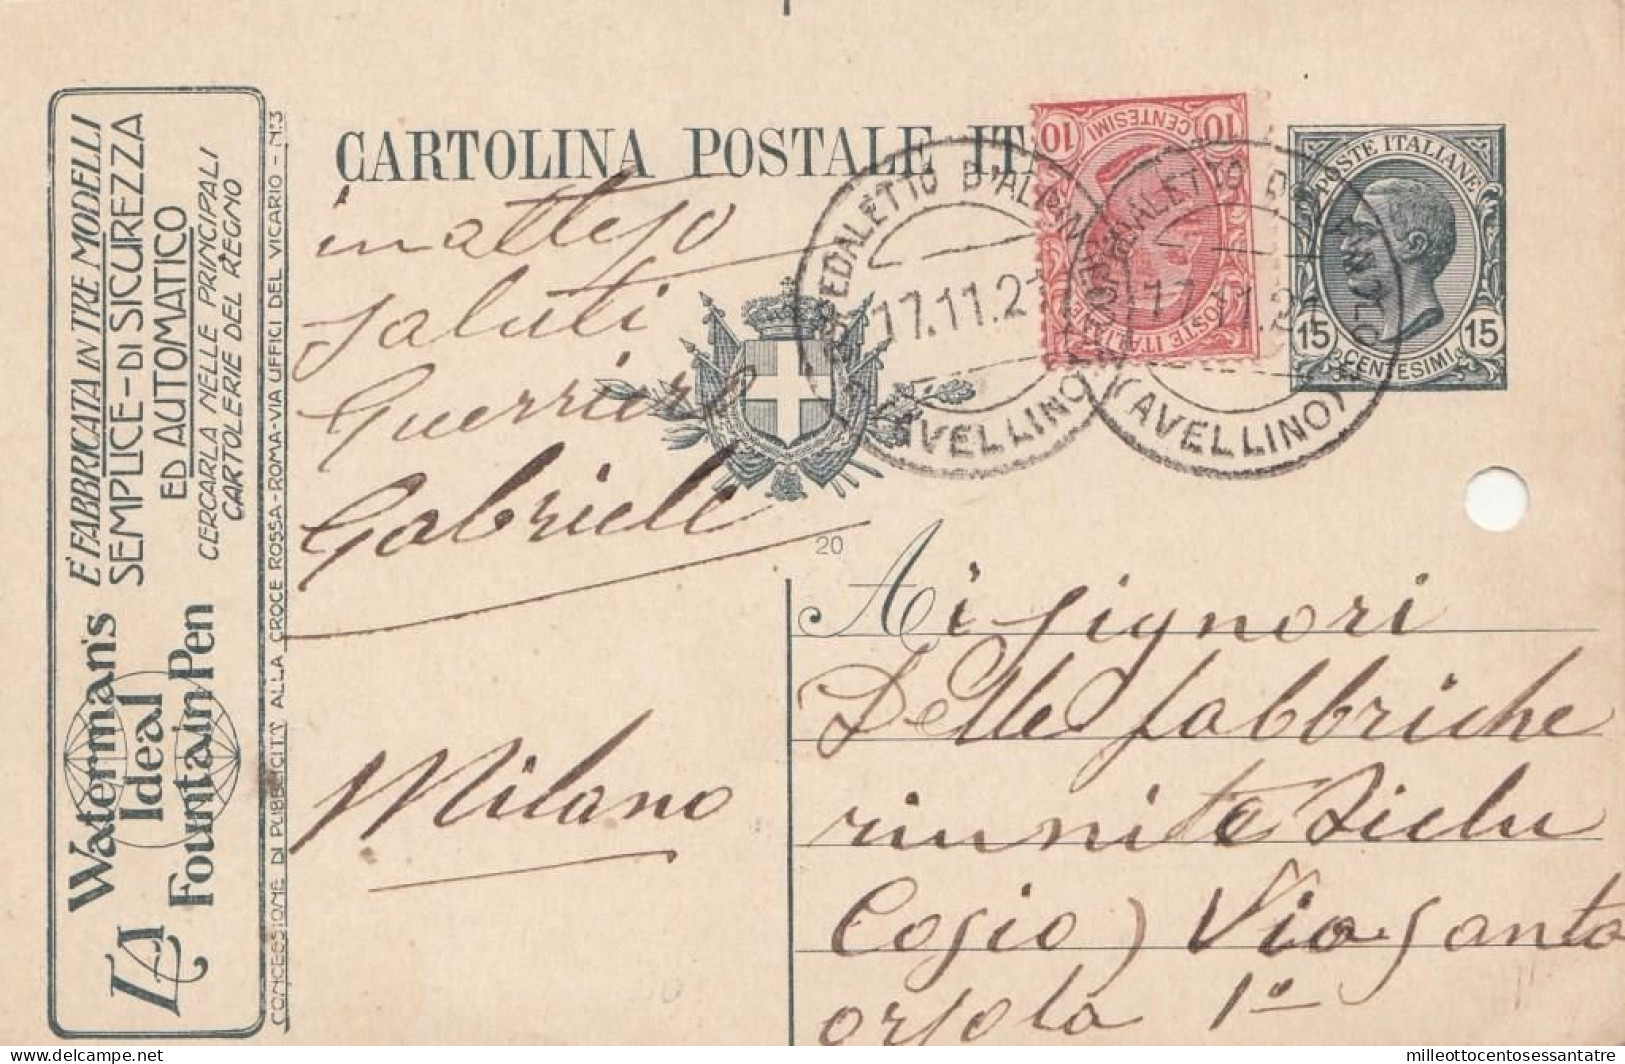 CARTOLINA POSTALE IT
10 CENTESIMI 10
POSTE ITALIANE
POSTE ITALIANE
15 CENTESIMI 15
17.11.21
(AVELLINO)
17.11.21
(AVELLINO)
LA Waterman's Ideal Fountain Pen
E' FABBRICATA IN TRE MODELLI
SEMPLICE - DI SICUREZZA
ED AUTOMATICO
CERCARLA NELLE PRINCIPALI
CARTOLERIE DEL REGNO
CONCESSIONE DI PUBBLICITÀ ALLA CROCE ROSSA - ROMA - VIA UFFICI DEL VICARIO - N.3
in atteso
saluti
Guerriero
Gabriele
20
Milano
Ai signori
Delle fabbriche
riunite
Via Santa
orsola 1°
milleottocentosessantatre